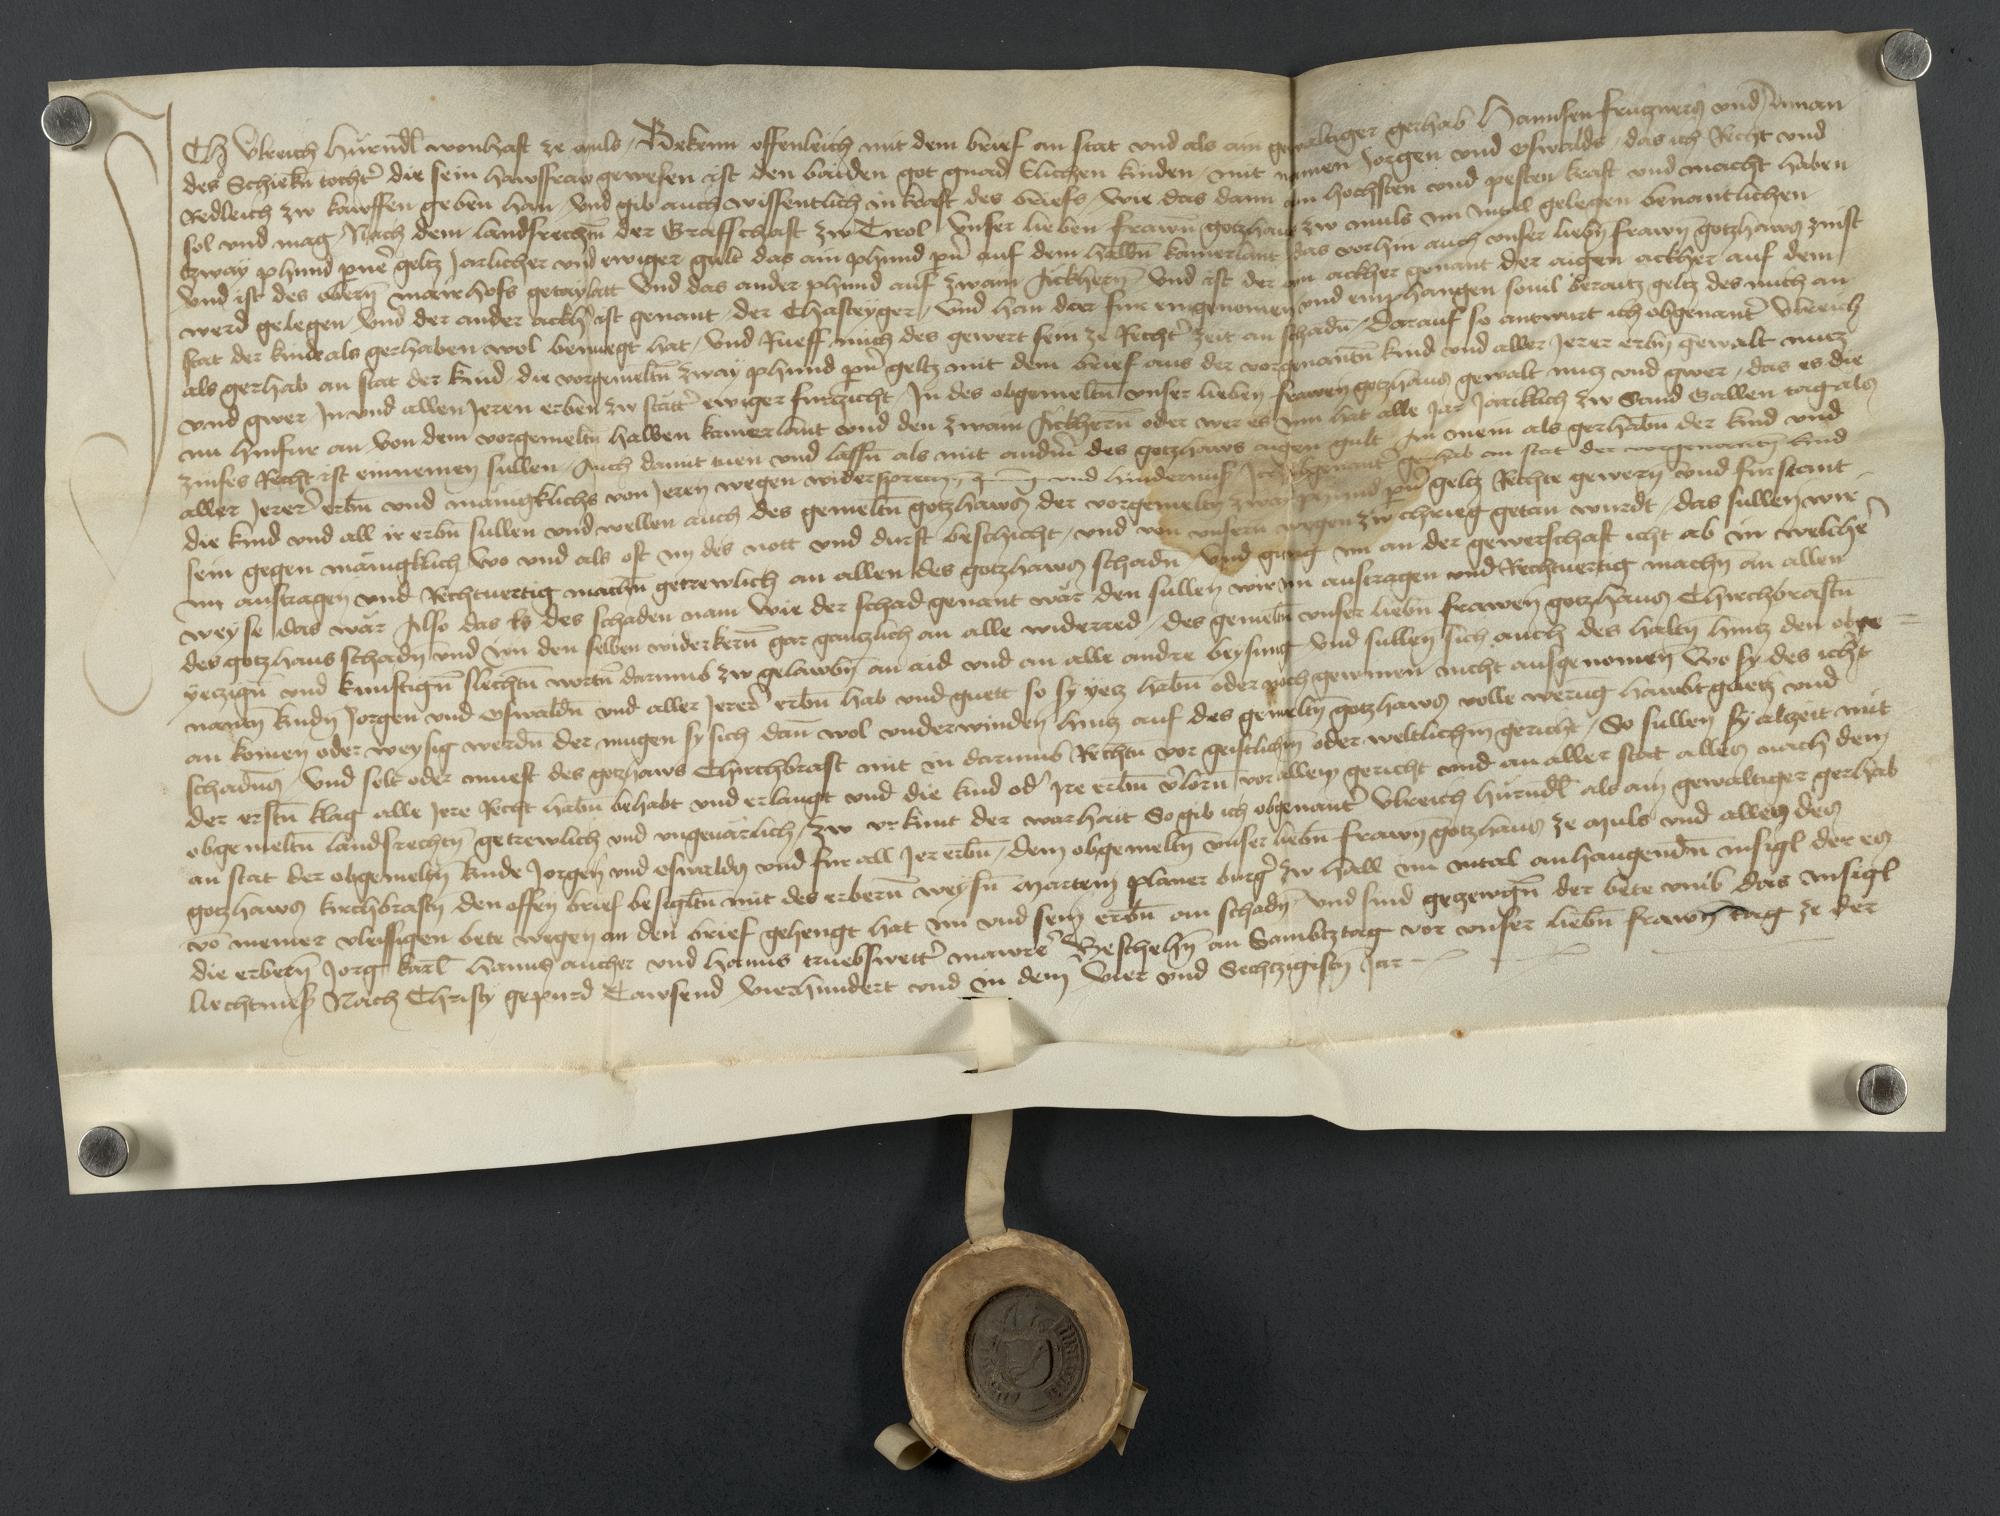 ICh Vlreich Hürndl wonhaft ze Mils Bekenn offenleich mit dem brief an stat vnd als ain gewaltiger gerhab Hannsen frugners vnd Annan
des Schiekn tochter die sein hawsfraw gewesen ist den baiden got gnad Elichen kinden mit namen Jorgen vnd Oswalds das ich Recht vnd
Redleich zw kauffen geben han vnd gib auch wissentlich in kraft des briefs wie das dann am hochsten vnd pesten kraft vnd macht haben
sol vnd mag Nach dem landsrechtn der Graffschaft zw Tirol Vnser lieben frawn gotzhaus zw Muls im Intal gelegen benantlichen
tzway phund pner geltz Jarlicher vnd ewiger gült das ain phund pner auf dem halbn kamerlant das vorhin auch vnser liebn frawn gotzhaws zinst
vnd ist des obern mairhofs getaylatt Vnd das ander phund auf zwain Äckhern Vnd ist der ain ackher genant der aigen ackher auf dem
werd gelegen vnd der ander ackher ist genant der Chasteyger Vnd han dar fur eingenomen vnd emphangen souil beraitz geltz des mich an
stat der kinde als gerhaben wol benuegt hat Vnd Rueff mich des gewert sein ze Rechter zeit an schadn Darauf so antwurt ich obgenanter Vlreich
als gerhab an stat der kind die vorgemeltn zway phund pner geltz mit dem brief aus der vorgenantn kind vnd aller Jerer erbn gewalt nutz
vnd gwer In vnd allen Jeren erben zw stätter ewiger furzicht In des obgemeltn vnser lieben frawen gotzhaus gewalt nutz vnd gwer das es die
nu hinfur an von dem vorgemeltn halben kamerlant vnd den zwain Äckhern oder wer es inn hat alle Jar Järiklich zw Sand Gallen tag als
zinses Recht ist einnemen sullen Auch damit tuen vnd lassn als mit anderm des gotzhaws aigen gult An mein als gerhabn der kind vnd
aller Jerer erbn vnd mänigklichs von Jeren wegen widersprechn vnd hindernus Ich obgenanter gerhab an stat der vorgenanten kind
die kind vnd all ir erbn sullen vnd wellen auch des gemeltn gotzhaws der vorgemeltn zway phund pner geltz Rechte gewern vnd furstant
sein gegen mänigklich wo vnd als oft in des nott vnd durft beschicht vnd von vnsern wegen zw chrieg getan wurdt das sullen wir
im austragen vnd Rechtuertig machn getrewlich an allen des gotzhaws schadn Vnd gieng im an der gewerschaft icht ab in welcher
weyse das wär Also das es des schaden nam wie der schad genant wär den sullen wir im austragen vnd Rechtuertig machn an allen
des gotzhaus schadn vnd im den selben widerkern gar gantzlich an alle widerred des gemeltn vnser liebn frawen gotzhaus Chirchbrastn
yetzign vnd kunftign slechtn wortn darumb zw gelawbn an aid vnd an alle andre beysung Vnd sullen sich auch des haltn hintz den obge=
nantn kindn Jorgen vnd Oswaldn vnd aller Jerer erbn hab vnd guett so sy yetz habn oder noch gewinen nicht ausgenomen Wo sy des icht
an komen oder weysig werdn der mugen sy sich dann wol vnderwinden hintz auf des gemeltn gotzhaws volle werung hawbtguetz vnd
schadns Vnd solt oder muest des gotzhaws Chirchbrast mit in darumb Rechtn vor geistlichm oder weltlichm gericht So sullen sy alzeit mit
der erstn klag alle Jere Recht habn behabt vnd erlangt vnd die kind oder Jre erbn verlorn vor allem gericht vnd an aller stat alles nach dem
obgemeltn landsrechtn getrewlich vnd vngeuärlich Zw vrkunt der warhait So gib ich obgenanter Vlreich Hürndl als ain gewaltiger gerhab
an stat der obgemeltn kinde Jorgen vnd Oswaldn vnd fur all Jer erbn dem obgemeltn vnser liebn frawn gotzhaus ze Muls vnd allen des
gotzhaws kirchbrastn den offen brief besigltn mit des erbern weysn Martein Planer burger zw Hall im Intal anhangendn Insigl der es
vo meiner vleissigen bete wegen an den brief gehengt hat im vnd sein erbn an schadn Vnd sind gezewgn der bete vmb das Insigl
die erbern Jorg Karl Hanns aucher vnd Hanns truebswetter mawrer Beschehn an Sambtztag vor vnser liebn frawn tag ze der
liechtmess Nach Christy gepurd Tawsend Vierhundert vnd in dem Vier vnd Sechtzigistn Jar